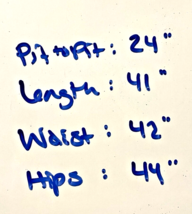 Pit to Pit: 24"
Length: 41"
Waist: 42"
Hips: 44"